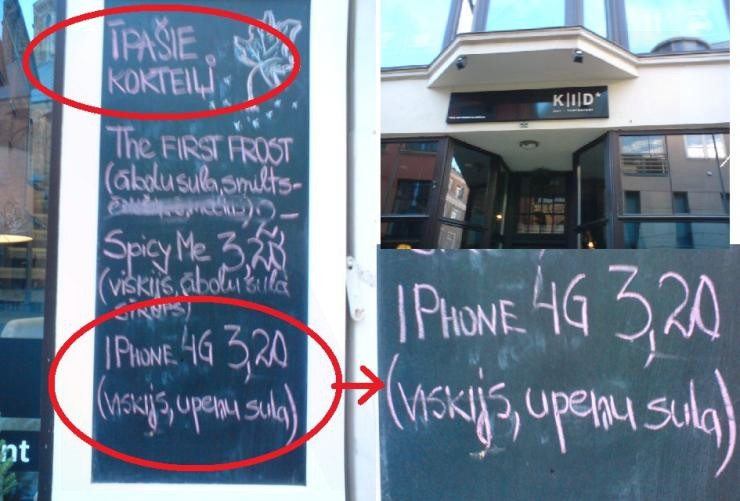 ĪPAŠIE
KOKTEIĻI
The FIRST FROST
(ābolu sula, smilts-
Spicy Me 3,20
(viskijs, ābolu sula
sīrups)
IPHONE 4G 3,20
(viskijs, upeņu sula)
nt
K|I|D*
IPHONE 4G 3,20
(viskijs, upeņu sula)